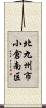 北九州市小倉南区